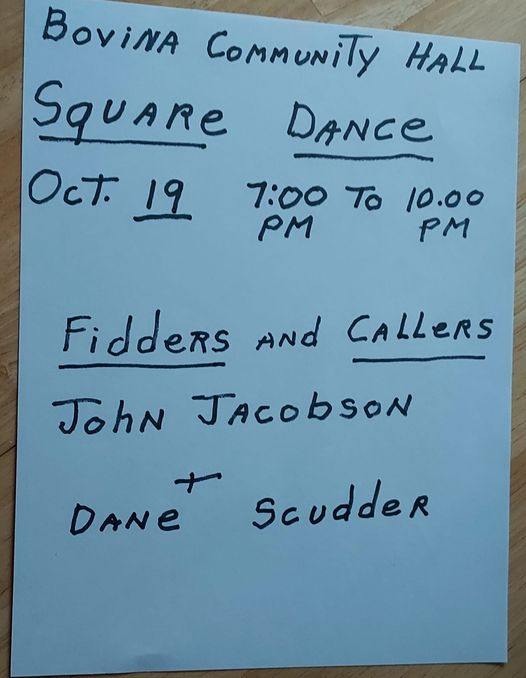 Bovina Community Hall
Square Dance
Oct. 19 7:00 To 10.00
PM PM
Fidders and Callers
John Jacobson
+
Dane Scudder